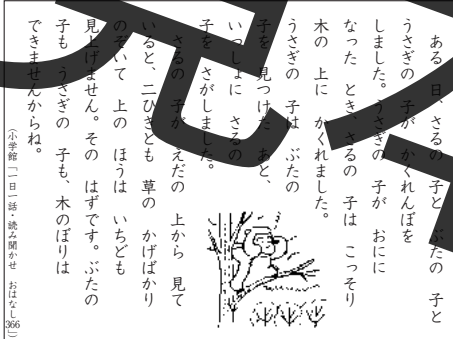 ある 日、さるの 子と ぶたの 子と
うさぎの 子が かくれんぼを
しました。うさぎの 子が おにに
なった とき、さるの 子は こっそり
木の 上に かくれました。
うさぎの 子は ぶたの
子を 見つけた あと、
いっしょに さるの
子を さがしました。
さるの 子が えだの 上から 見て
いると、二ひきとも 草の かげばかり
のぞいて 上の ほうは いちども
見上げません。その はずです。ぶたの
子も うさぎの 子も、木のぼりは
できませんからね。
(小学館「一日一話・読み聞かせ おはなし366」)